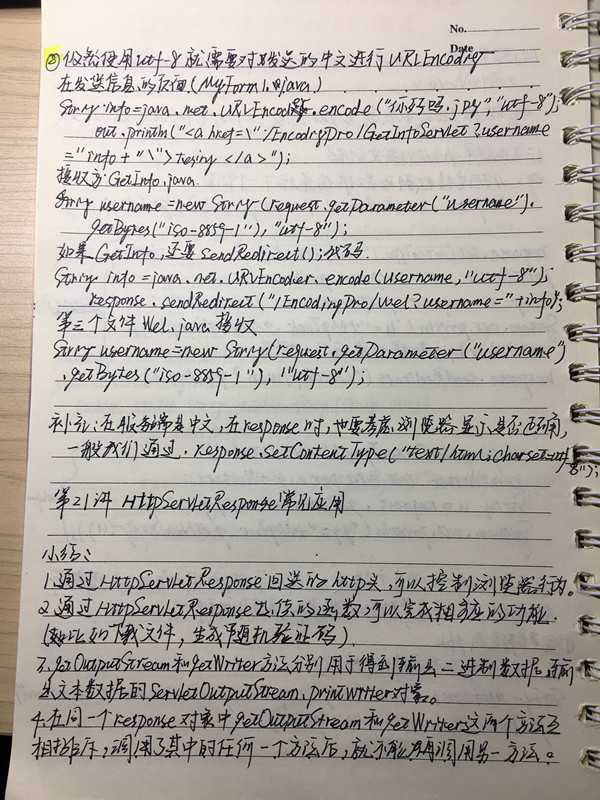 No.
Date
② 假若使用utf-8 就需要对发送的中文进行URLEncoding
在发送信息的页面(MyForm1.java)
String info=java.net.URLEncoder.encode("你好吗.jpg","utf-8");
out.println("<a href=\"/EncodingPro/GetInfoServlet?username
="info+"\">testing</a>");
接收方GetInfo.java
String username=new String(request.getParameter("username").
getBytes("iso-8859-1"),"utf-8");
如果GetInfo,还要sendRedirect();代码.
String info=java.net.URLEncoder.encode(username,"utf-8");
response.sendRedirect("/EncodingPro/Wel?username="+info);
第三个文件Wel.java接收
String username=new String(request.getParameter("username")
.getBytes("iso-8859-1"),"utf-8");
补充:在服务端是中文,在response时,也要考虑浏览器显示是否正确,
一般我们通过.response.setContentType("text/html;charset=utf-8");
第21讲 HttpServletResponse常见应用
小结:
1.通过HttpServletResponse回送的http头,可以控制浏览器行为。
2.通过HttpServletResponse提供的函数,可以完成相应的功能.
(如比如下载文件,生成随机验证码)
3.getOutputStream和getWriter方法分别用于得到输出二进制数据、输
出文本数据的ServletOutputStream、printwriter对象。
4.在同一个response对象中getOutputStream和getWriter这两个方法互
相排斥,调用了其中的任何一个方法后,就不能再调用另一方法。